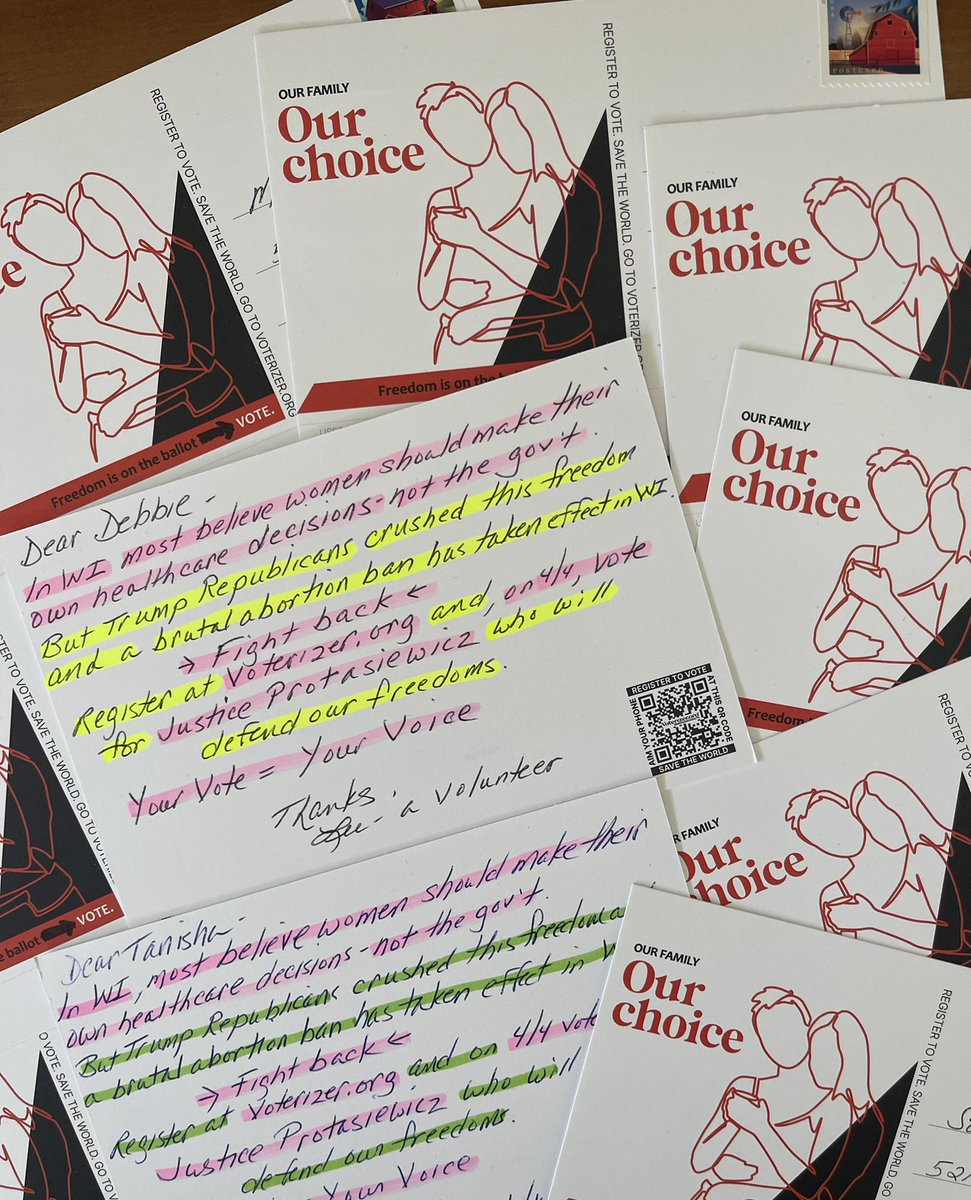 POSTCARD
REGISTER TO VOTE. SAVE THE WORLD. GO TO VOTERIZER.ORG
Freedom is on the ballot VOTE.
OUR FAMILY
Our
choice
REGISTER TO VOTE. SAVE THE WORLD. GO TO VOTERIZER
Freedom is on the
OUR FAMILY
Our
choice
OUR FAMILY
Our
choice
Freedom is on the
Dear Debbie -
In WI most believe women should make their
own healthcare decisions - not the gov't.
But Trump Republicans crushed this freedom
and a brutal abortion ban has taken effect in WI.
→ Fight back ←
Register at Voterizer.org and, on 4/4, vote
for Justice Protasiewicz who will
defend our freedoms.
Your Vote = Your Voice
Thanks,
- a volunteer
REGISTER TO VOTE
AIM YOUR PHONE
AT THIS QR CODE
SAVE THE WORLD
REGISTER TO VOTE. SAVE THE WORLD. GO TO VOTERIZER
ballot VOTE.
Dear Tanisha -
In WI, most believe women should make their
own healthcare decisions - not the gov't.
But Trump Republicans crushed this freedom a
a brutal abortion ban has taken effect in
→ Fight back ←
Register at Voterizer.org and on 4/4 vote
Justice Protasiewicz who will
defend our freedoms.
Your Voice
OUR FAMILY
our
choice
OUR FAMILY
Our
choice
REGISTER TO VOTE. SAVE THE WORLD. GO TO VOTE
O VOTE. SAVE THE WORLD. GO TO VOTERIZER.ORG